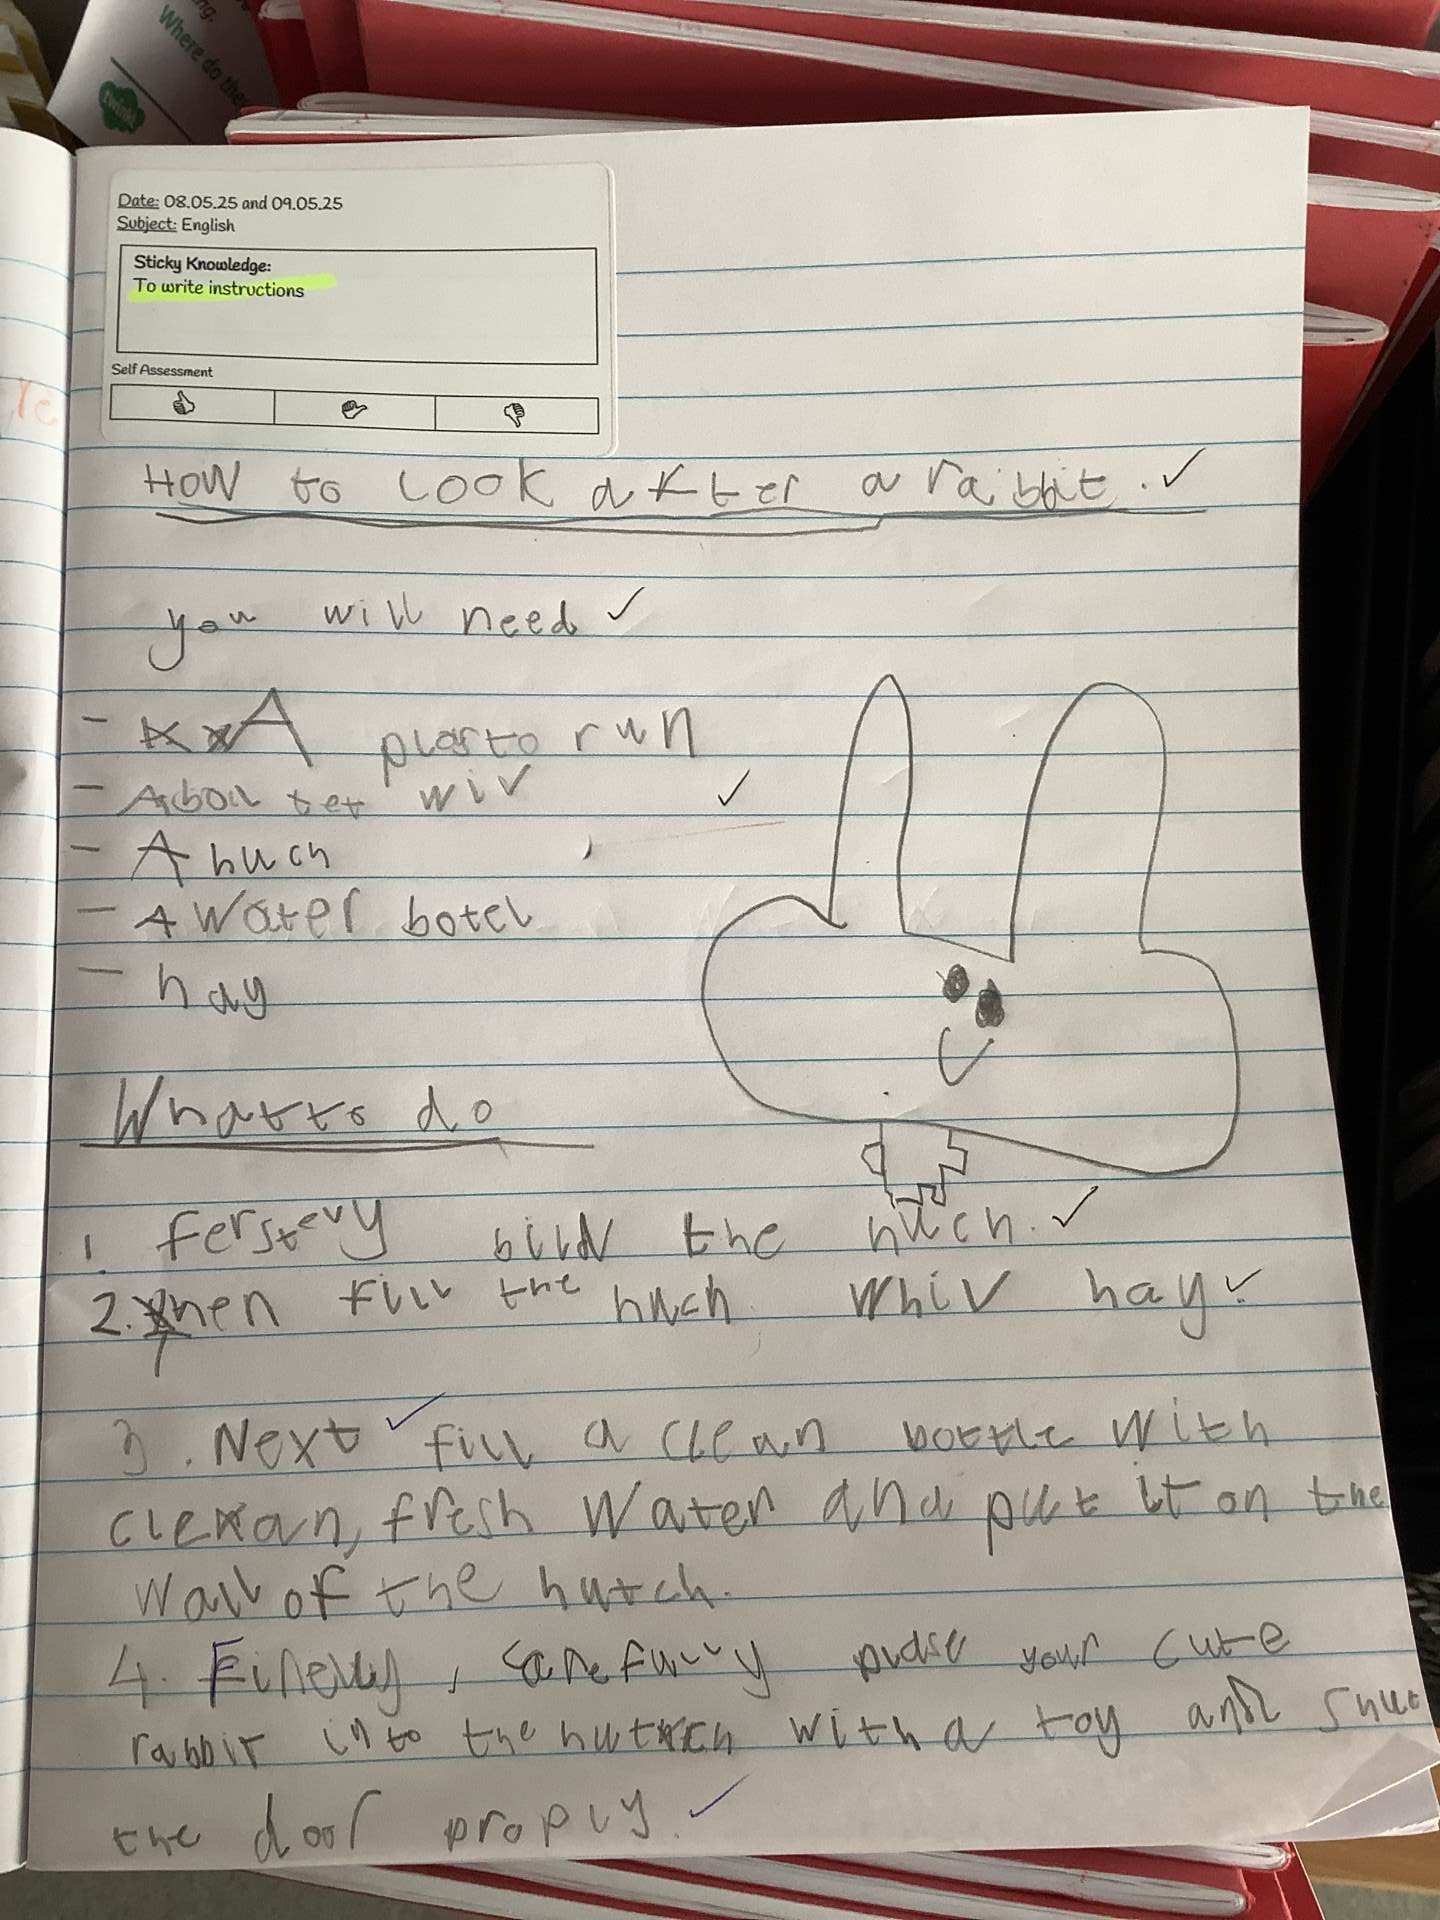 Where do they
twinkl
Date: 08.05.25 and 09.05.25
Subject: English
Sticky Knowledge:
To write instructions
Self Assessment
How to look after a rabbit.
you will need
- A plasto run
- A
- A huch
- A water botel
- hay
What to do
1. ferstely bild the huch.
2. Then fill the huch whiv hay.
3. Next fill a clean bottle with
clean, fresh water and put it on the
wall of the hutch.
4. Finelly, carefully plase your cute
rabbit into the hutch with a toy and shut
the door proply.